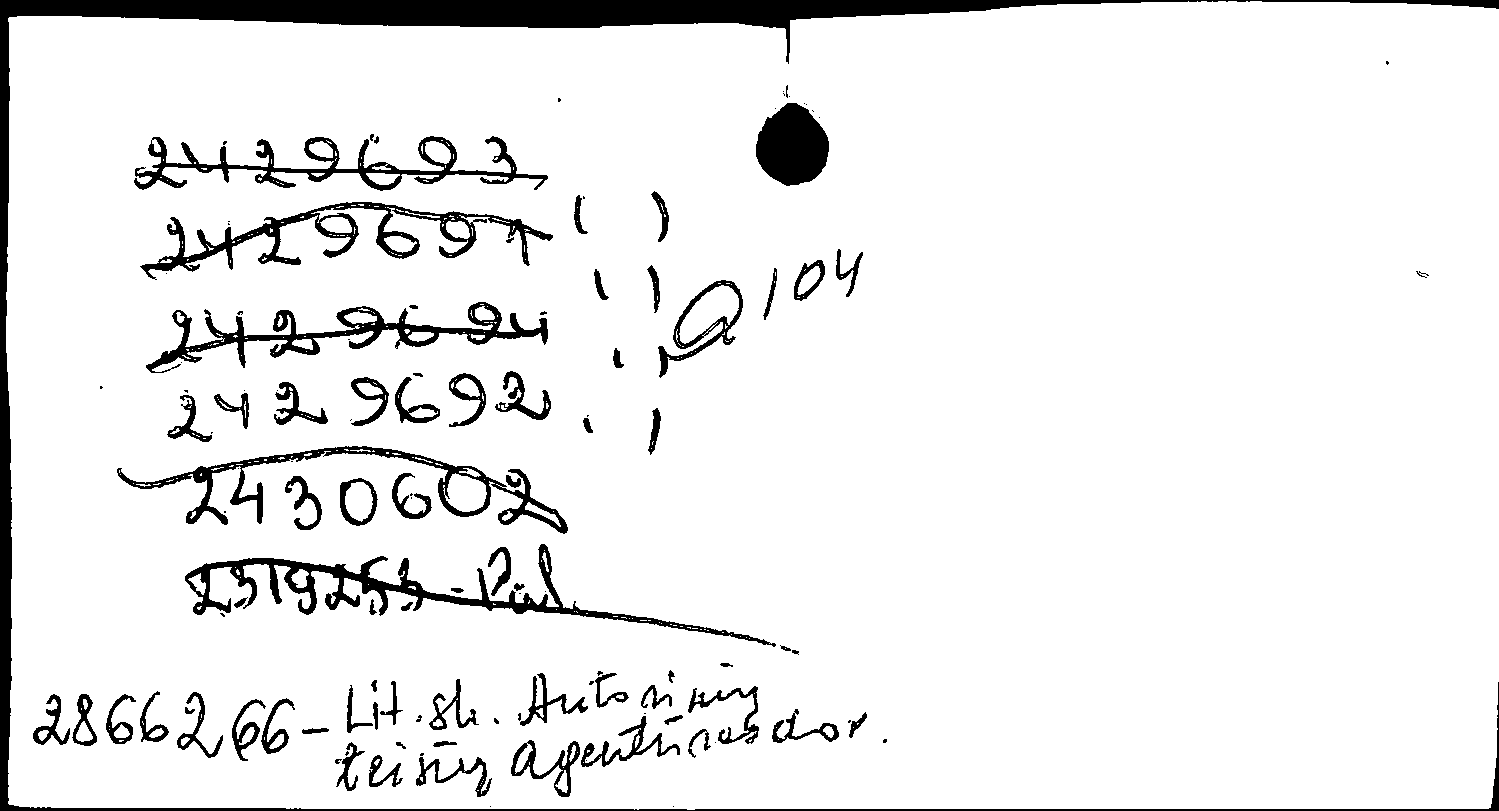 2429693
2429691
2429694
2429692
Q 104
2430602
2319253 - Pal.
2866266 - Lit. sk. Autorinių
teisių agentūros dor.